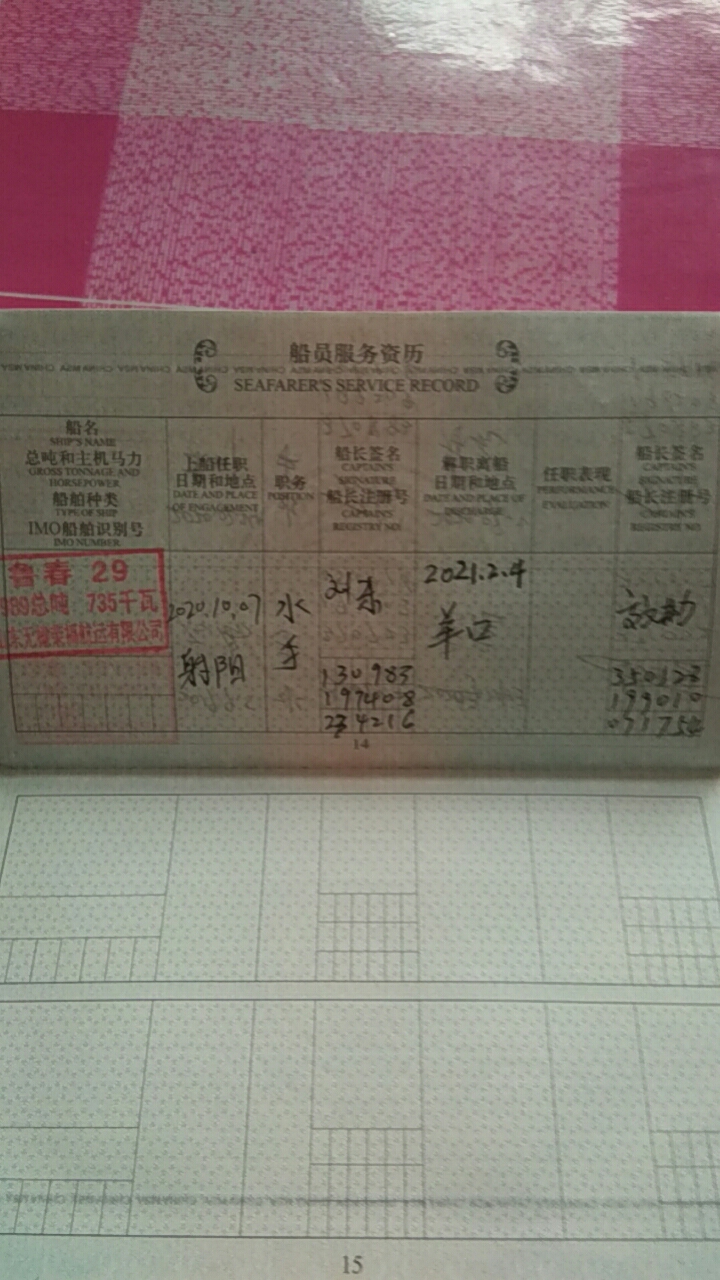 船员服务资历
SEAFARER'S SERVICE RECORD
船名
SHIP'S NAME
总吨和主机马力
GROSS TONNAGE AND
HORSEPOWER
船舶种类
TYPE OF SHIP
IMO船舶识别号
IMO NUMBER
上船任职
日期和地点
DATE AND PLACE
OF ENGAGEMENT
职务
POSITION
船长签名
CAPTAIN'S
SIGNATURE
船长注册号
CAPTAIN'S
REGISTRY NO.
解职离船
日期和地点
DATE AND PLACE OF
DISCHARGE
任职表现
PERFORMANCE
EVALUATION
船长签名
CAPTAIN'S
SIGNATURE
船长注册号
CAPTAIN'S
REGISTRY NO.
鲁春 29
989总吨 735千瓦
2020.10.07
射阳
水
手
130983
197408
234216
2021.2.4
羊口
350123
199010
071754
14
15